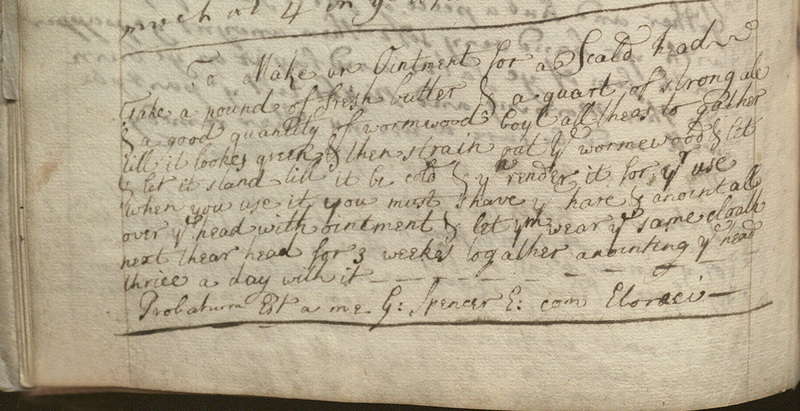 much at 4 in ye
To Make an Ointment for a Scald head
Take a pound of fresh butter & a quart of strong ale
& a good quantity of wormewood: boyl all thees to gather
till it lookes green & then strain out ye wormewood & let
& let it stand till it be cold & yn render it for yr use
when you use it you must shave ye hare & anoint all
over ye head with ointment & let ym wear ye same cloath
next thear head for 3 weekes togather anointing ye head
thrice a day with it
Probatum Est a me G: Spencer E: com Eboraci